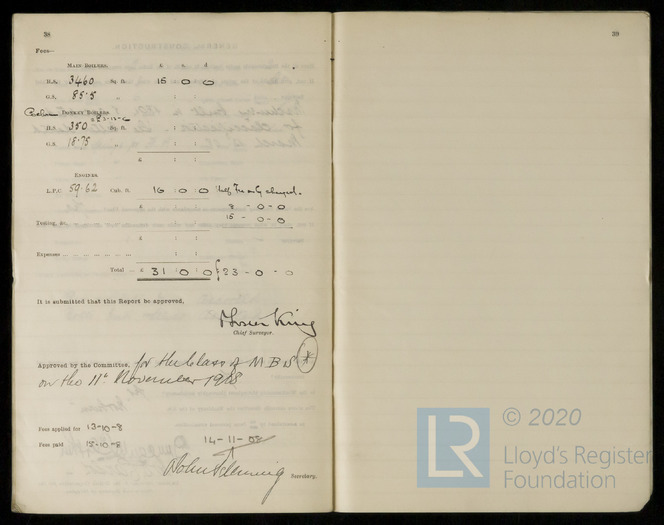 38
39
Fees—
MAIN BOILERS. £ s d
H.S. 3460 Sq. ft. 15 : 0 : 0
G.S. 85.5 „ : :
DONKEY BOILERS.
H.S. 350 Sq. ft. : :
G.S. 18.75 „ : :
£ : :
ENGINES.
L.P.C. 59.62 Cub. ft. 16 : 0 : 0 half fee only charged.
£ : : 8 - 0 - 0
Testing, &c. 15 - 0 - 0
£ : :
Expenses : :
Total £ 31 : 0 : 0 { 23 - 0 - 0
It is submitted that this Report be approved,
King
Chief Surveyor.
Approved by the Committee, for the Class of M.B.S.
on the 11th November 1908
Fees applied for 13-10-8
Fees paid 15-10-8 14-11-08
John Fleming Secretary.
LR
© 2020
Lloyd's Register
Foundation